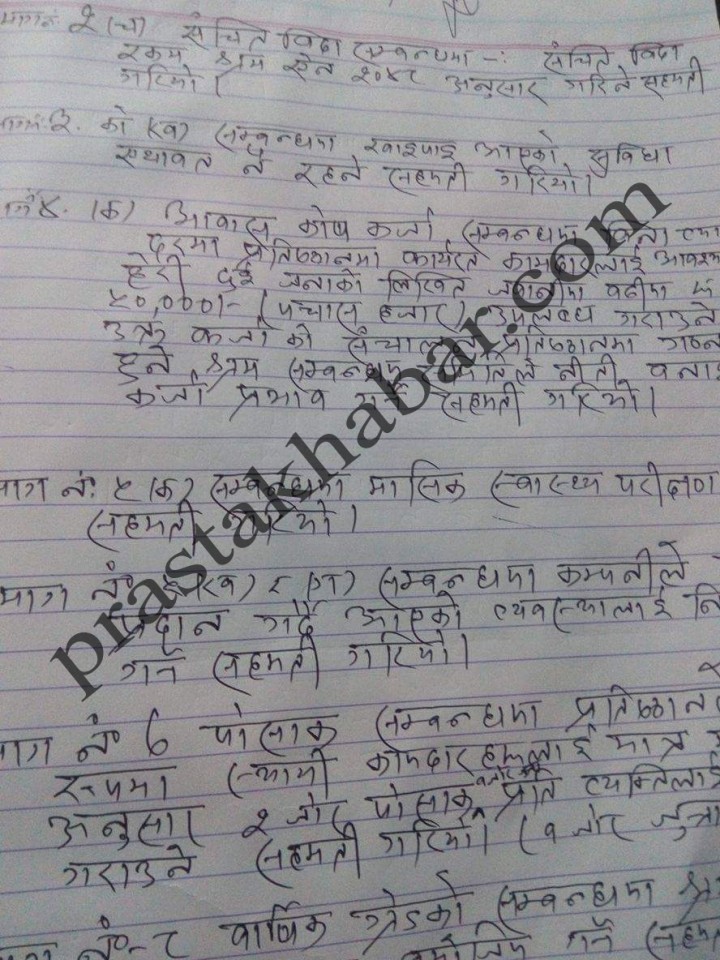 २ (च) संचित विदा सम्वन्धमा -: संचित विदा
रकम श्रम ऐन २०४८ अनुसार गरिने सहमती
गरियो।
३. को (ख) सम्वन्धमा खाईपाई आएको सुविधा
यथावत नै रहने सहमती गरियो।
४. (क) आवास कोष कर्जा सम्वन्धमा
दरमा प्रतिष्ठानमा कार्यरत कामदारलाई
हेरी दुई जनाको लिखित जमानीमा वढीमा रु
५०,०००।- (पचास हजार) उपलब्ध गराउने
उक्त कर्जा को संचालन प्रतिष्ठानमा गठन
हुने श्रम सम्वन्धमा समितिले नीती वनाई
कर्जा प्रभाव गर्ने सहमती गरियो।
माग नं. ५ (क) सम्वन्धमा मासिक स्वास्थ्य परीक्षण
सहमती गरियो।
माग नं० ६ (ख) र (ग) सम्वन्धमा कम्पनीले
प्रदान गर्दै आएको व्यवस्थालाई
गर्न सहमती गरियो।
माग नं० ७ पोसाक सम्वन्धमा प्रतिष्ठान
रुपमा स्थायी कामदारहरुलाई मात्र
अनुसार २ जोर पोसाक प्रति व्यक्तिलाई
गराउने सहमती गरियो। (१ जोर जुत्ता
माग नं०- ८ वार्षिक ग्रेडको सम्वन्धमा
गर्ने सहमती
prastakhabar.com